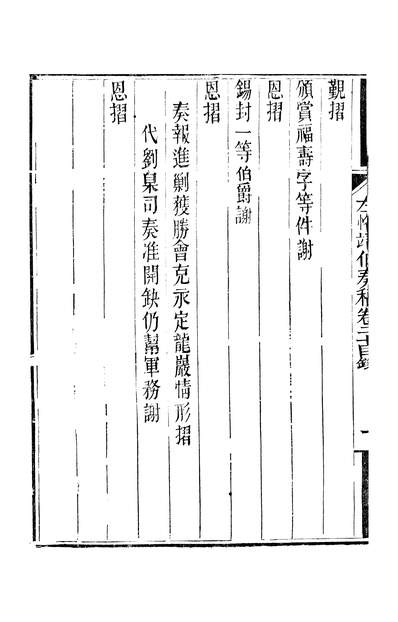 覲摺
頒賞福壽字等件謝
恩摺
錫封一等伯爵謝
恩摺
奏報進剿獲勝會克永定龍巖情形摺
代劉臬司奏准開缺仍幫軍務謝
恩摺